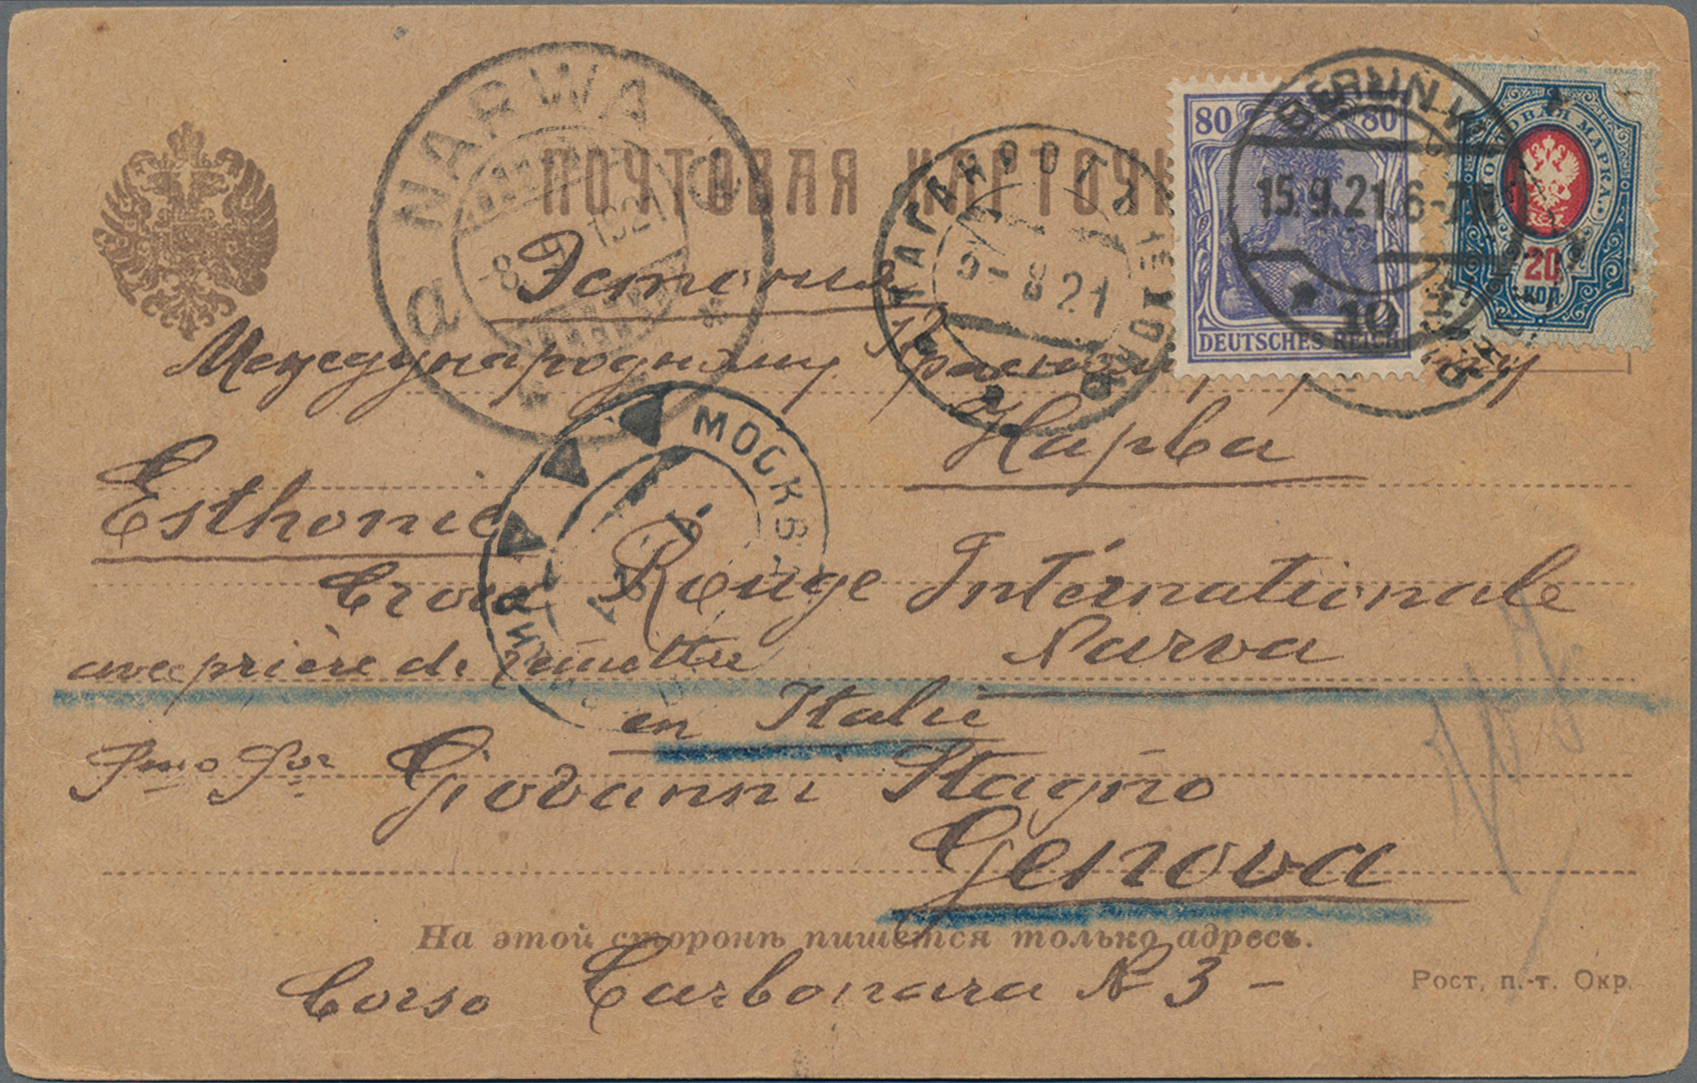 ПОЧТОВАЯ КАРТОЧК
NARWA
a
8 1921
ТАГАНРОГЪ
5-8 21
80 80
DEUTSCHES REICH
BERLIN
15.9.21.6-7N
10
ПОЧТОВАЯ МАРКА
20
КОП
Эстонія
Международному Красному
Нарва
МОСКВА
Esthonie
Croix Rouge Internationale
avec prière de remettre Narva
en Italie
Giovanni Stagno
Genova
На этой сторонѣ пишется только адресъ.
Corso Carbonara N 3 -
Рост. п.-т. Окр.